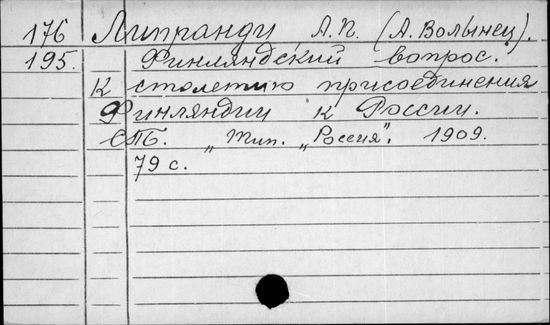 176 Липранди А.П. (А. Волынец).
195. Финляндский вопрос.
К столетию присоединения
Финляндии к России.
СПБ. „Тип. „Россия". 1909.
79 с.